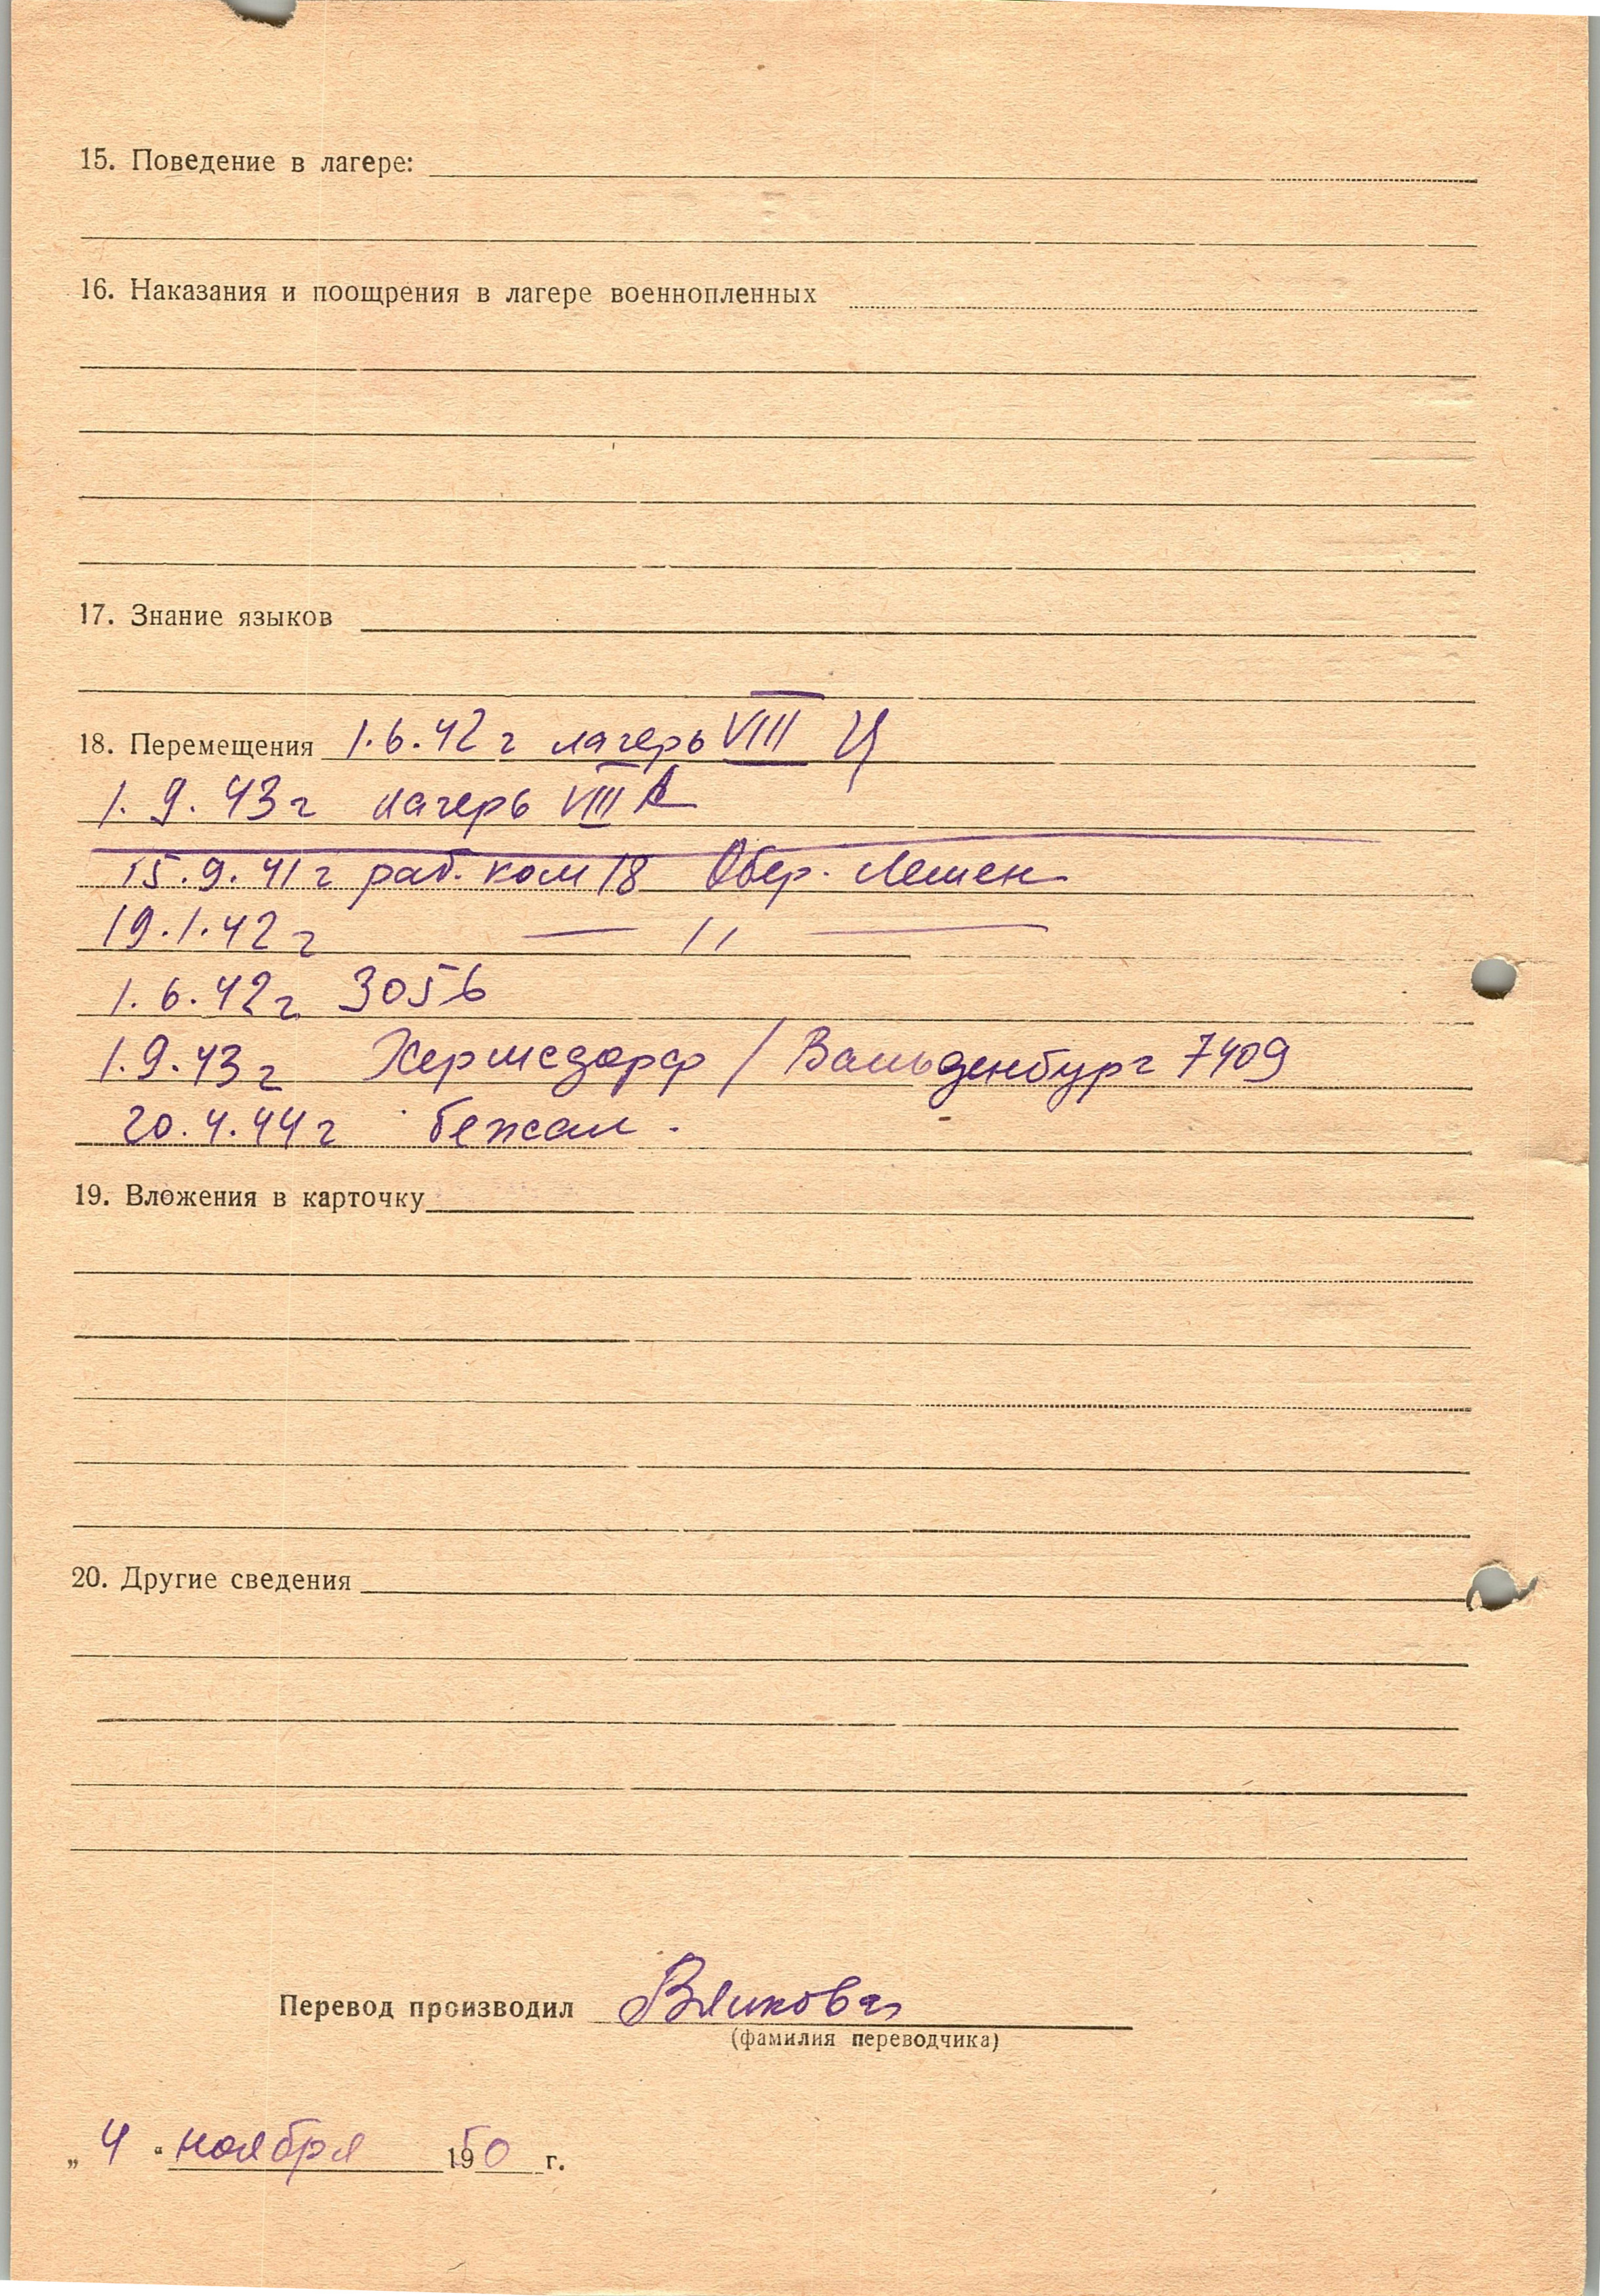 15. Поведение в лагере:
16. Наказания и поощрения в лагере военнопленных
17. Знание языков
18. Перемещения 1.6.42 г лагерь VIII Ц
1.9.43 г лагерь VIII А
15.9.41 г раб. ком 18 Обер. Лешен
19.1.42 г — 〃 —
1.6.42 г 3056
1.9.43 г Хермсдорф / Вальденбург 7409
20.4.44 г бежал.
19. Вложения в карточку
20. Другие сведения
Перевод производил
(фамилия переводчика)
„ 4 “ ноября 1950 г.